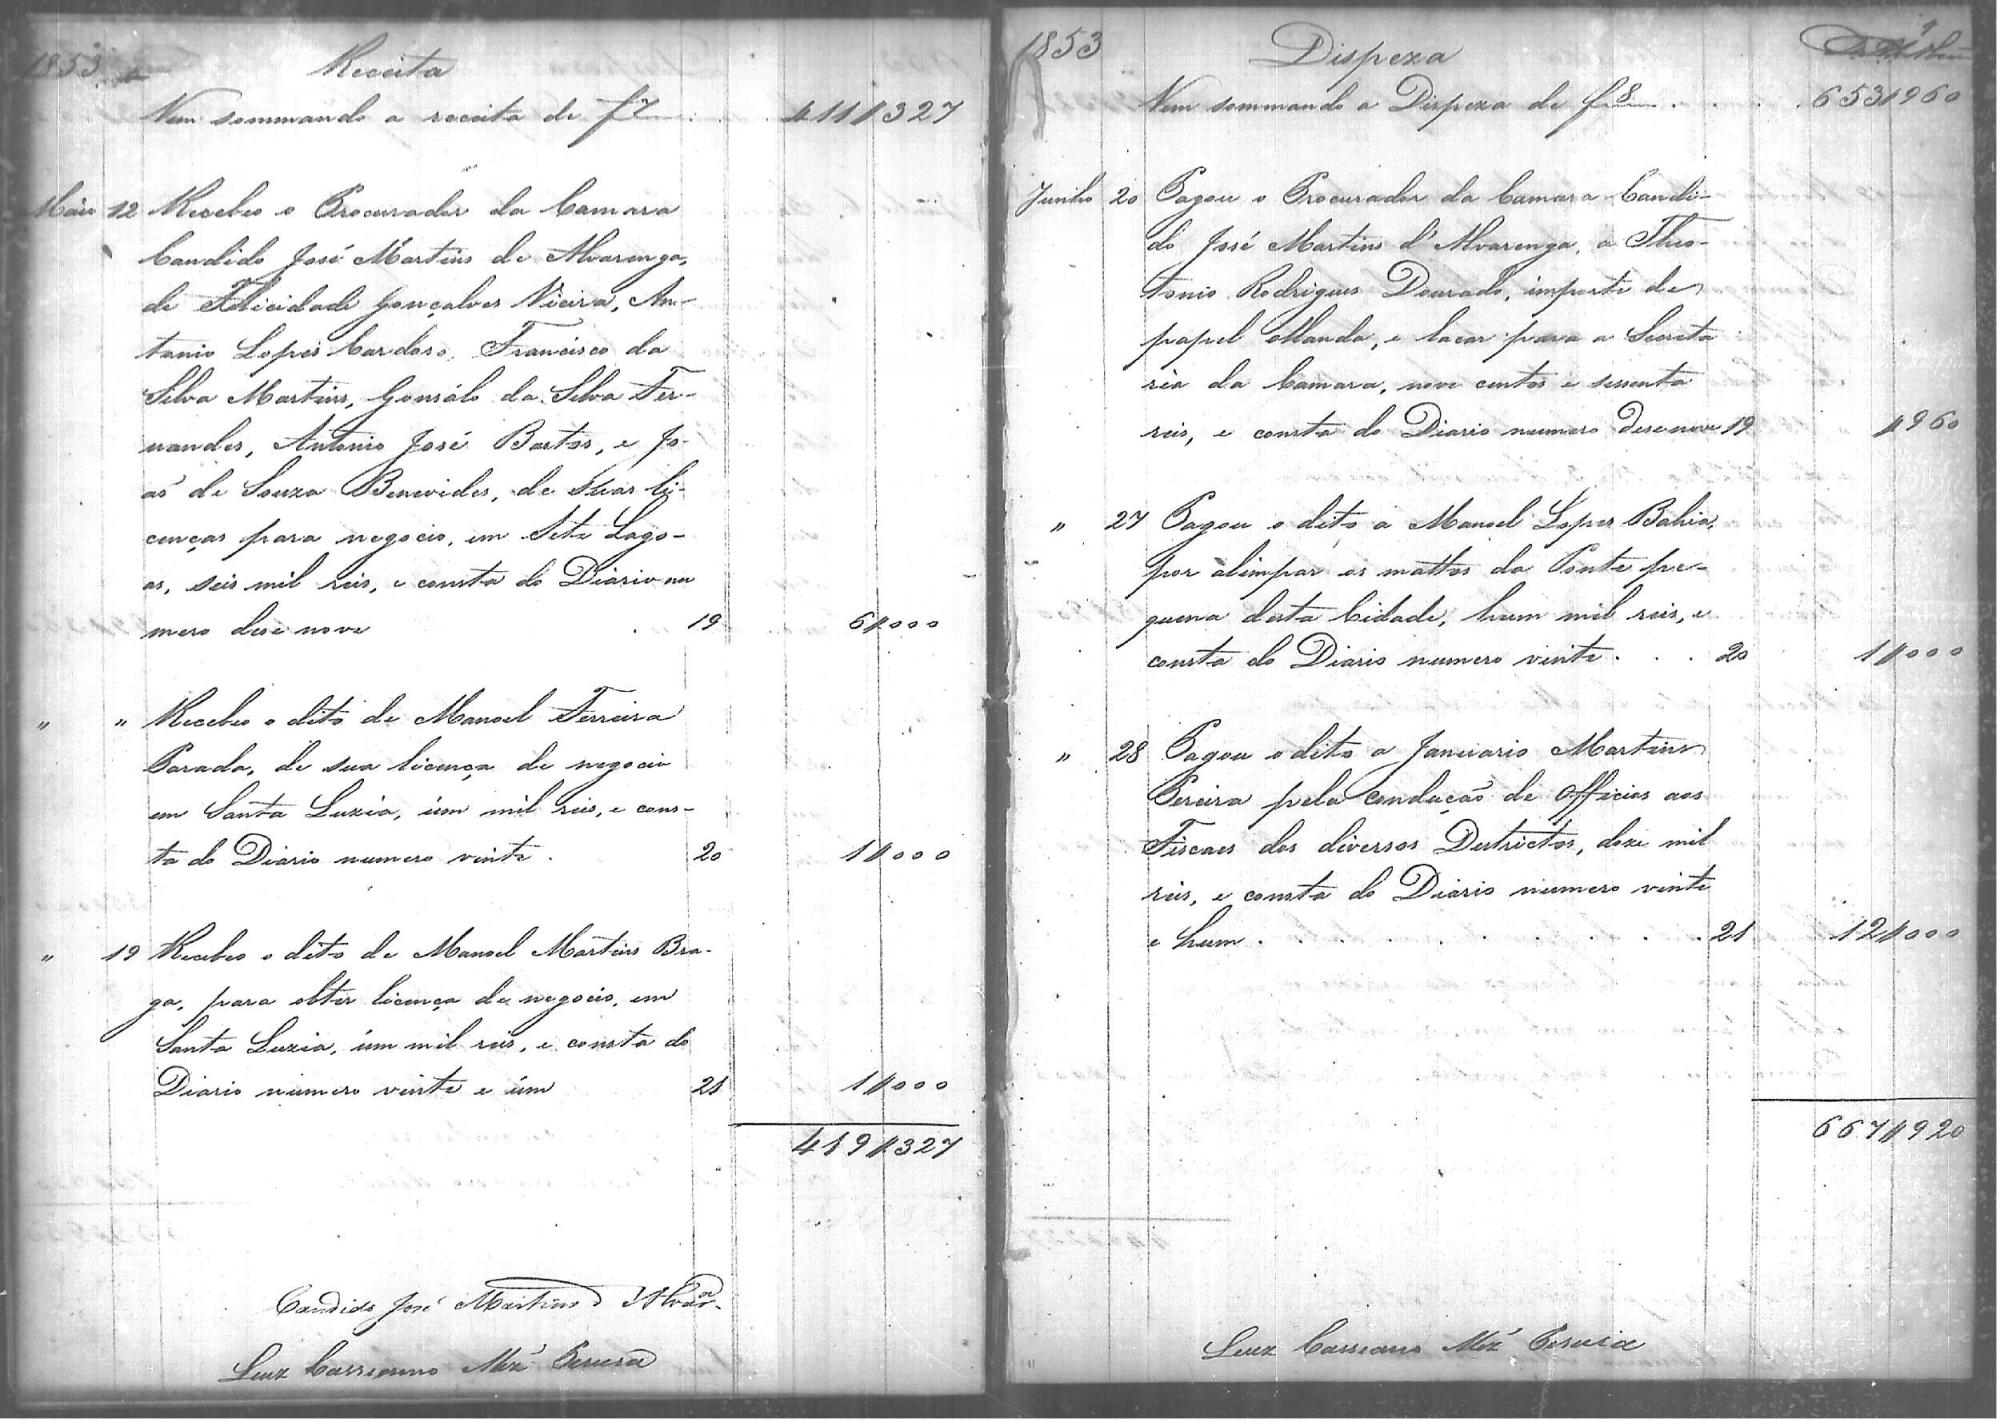 1853
Receita
Vem sommando a receita de f 7 411$327
Maio 12 Recebeo o Procurador da Camara
Candido José Martins de Alvarenga,
de Felicidade Gonçalves Vieira, An-
tonio Lopes Cardoso, Francisco da
Silva Martins, Gonsálo da Silva Fer-
nandes, Antonio José Bastos, e Jo-
aõ de Souza Benevides, de suas li-
cenças para negocio, em Sete Lago-
as, seis mil reis, e consta do Diario nu
mero dese nove 19 6$000
" " Recebeo o dito de Manoel Ferreira
Parada, de sua licença de negocio
em Santa Luzia, úm mil reis, e cons-
ta do Diario numero vinte . 20 1$000
" 19 Recebeo o dito de Manoel Martins Bra-
ga, para obter licença de negocio, em
Santa Luzia, úm mil reis, e consta do
Diario numero vinte e úm 21 1$000
419$327
Candido José Martins d'Alvarª
Luiz Cassiano Miz Pereira
1853
Dispeza
9
Vem sommando a Dispeza de f 8 . . . 653$960
Junho 20 Pagou o Procurador da Camara Candi-
do José Martins d'Alvarenga, a Theo-
tonio Rodrigues Dourado, importe de
papel ollanda, e lacar para a Secreta
ria da Camara, nove centos e sessenta
reis, e consta do Diario numero dese nove 19 $960
" 27 Pagou o dito a Manoel Lopes Bahia,
por alimpar os mattos da Ponte pe-
quena desta Cidade, hum mil reis, e
consta do Diario numero vinte . . . 20 1$000
" 28 Pagou o dito a Januario Martins
Pereira pela conduçaõ de Officios aos
Fiscaes dos diversos Destrictos, doze mil
reis, e consta do Diario numero vinte
e hum . . . . . . . . 21 12$000
667$920
Luiz Cassiano Miz Pereira